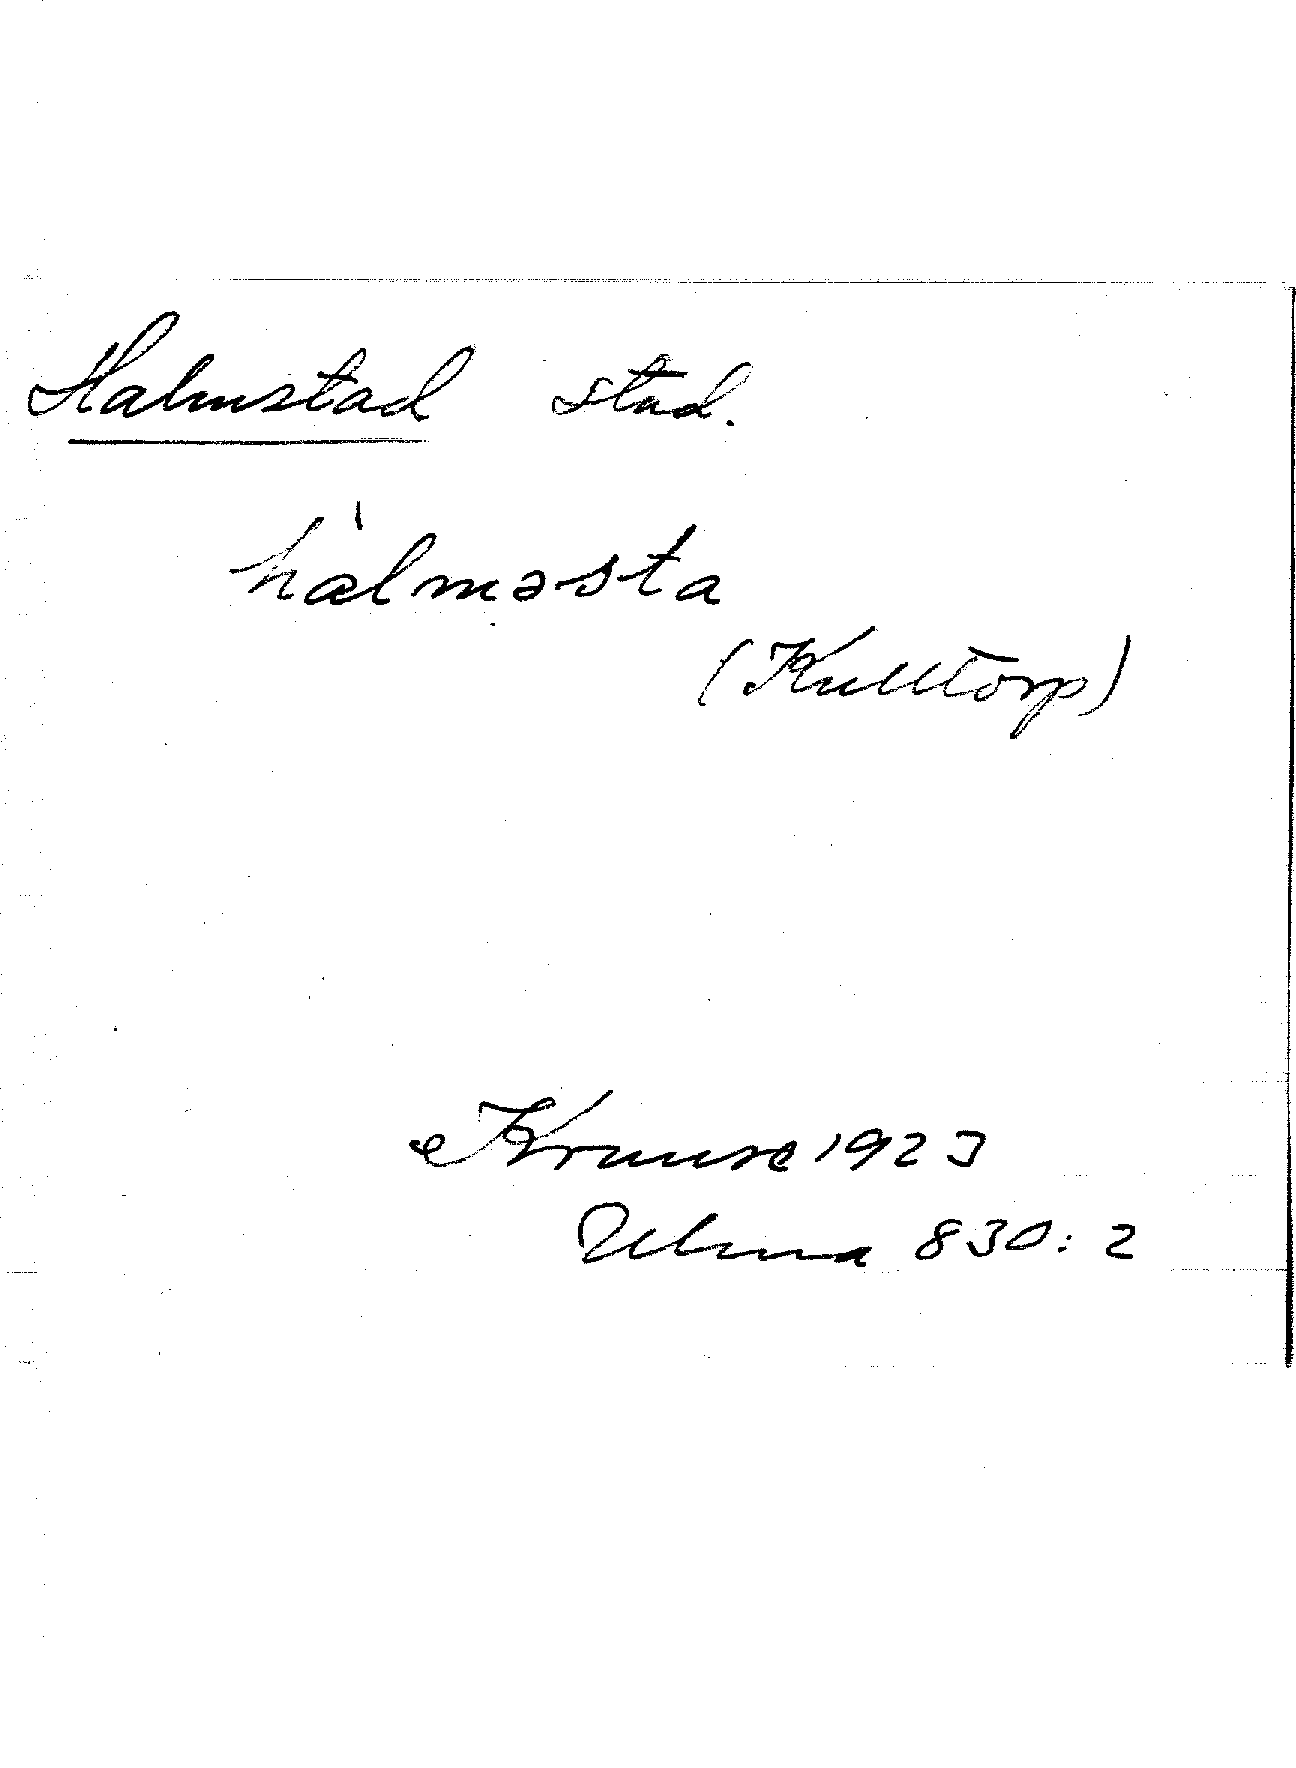 Halmstad stad.
hàlməsta
(Kulltorp)
Krause 1923
Ulma 830:2